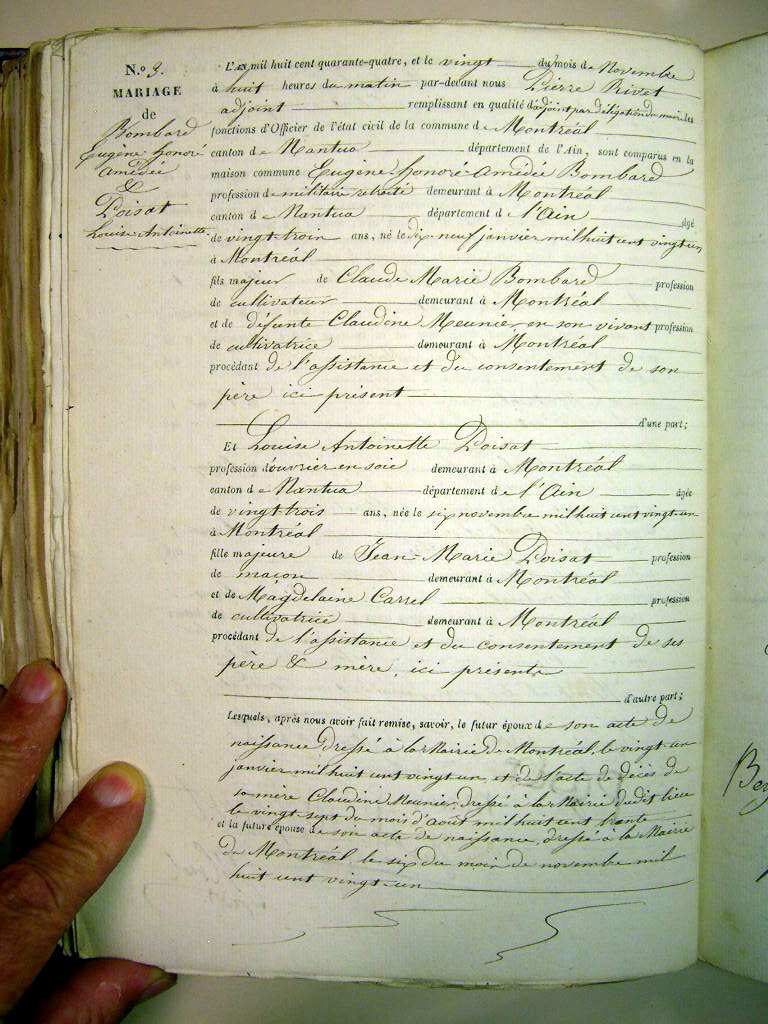 N.º 3.
MARIAGE
de
Bombard
Eugène honoré
amédée
&
Poisat
Louise Antoinette
L'AN mil huit cent quarante-quatre, et le vingt du mois de Novembre
à huit heures du matin par-devant nous Pierre Rivet
adjoint remplissant en qualité d'adjoint par délégation du maire les
fonctions d'Officier de l'état civil de la commune de Montréal
canton de Nantua département de l'Ain, sont comparus en la
maison commune Eugène-honoré-Amédée Bombard
profession de militaire retraité demeurant à Montréal
canton de Nantua département de l'Ain âgé
de vingt-trois ans, né le dix neuf janvier mil huit cent vingt un
à Montréal
fils majeur de Claude Marie Bombard profession
de cultivateur demeurant à Montréal
et de défunte Claudine Meunier, en son vivant profession
de cultivatrice demeurant à Montréal
procédant de l'assistance et du consentement de son
père ici présent
d'une part;
Et Louise Antoinette Poisat
profession d'ouvrier en soie demeurant à Montréal
canton de Nantua département de l'Ain âgée
de vingt-trois ans, née le six novembre mil huit cent vingt-un
à Montréal
fille majeure de Jean-Marie Poisat profession
de maçon demeurant à Montréal
et de Magdelaine Carrel profession
de cultivatrice demeurant à Montréal
procédant de l'assistance et du consentement de ses
père & mère, ici présents
d'autre part;
Lesquels, après nous avoir fait remise, savoir, le futur époux de son acte de
naissance dressé à la Mairie de Montréal, le vingt-un
janvier mil huit cent vingt un, et de l'acte de décès de
sa mère Claudine Meunier, dressé à la Mairie dudit lieu
le vingt sept du mois d'août mil huit cent trente
et la future épouse de son acte de naissance, dressé à la Mairie
de Montréal, le six du mois de novembre mil
huit cent vingt-un